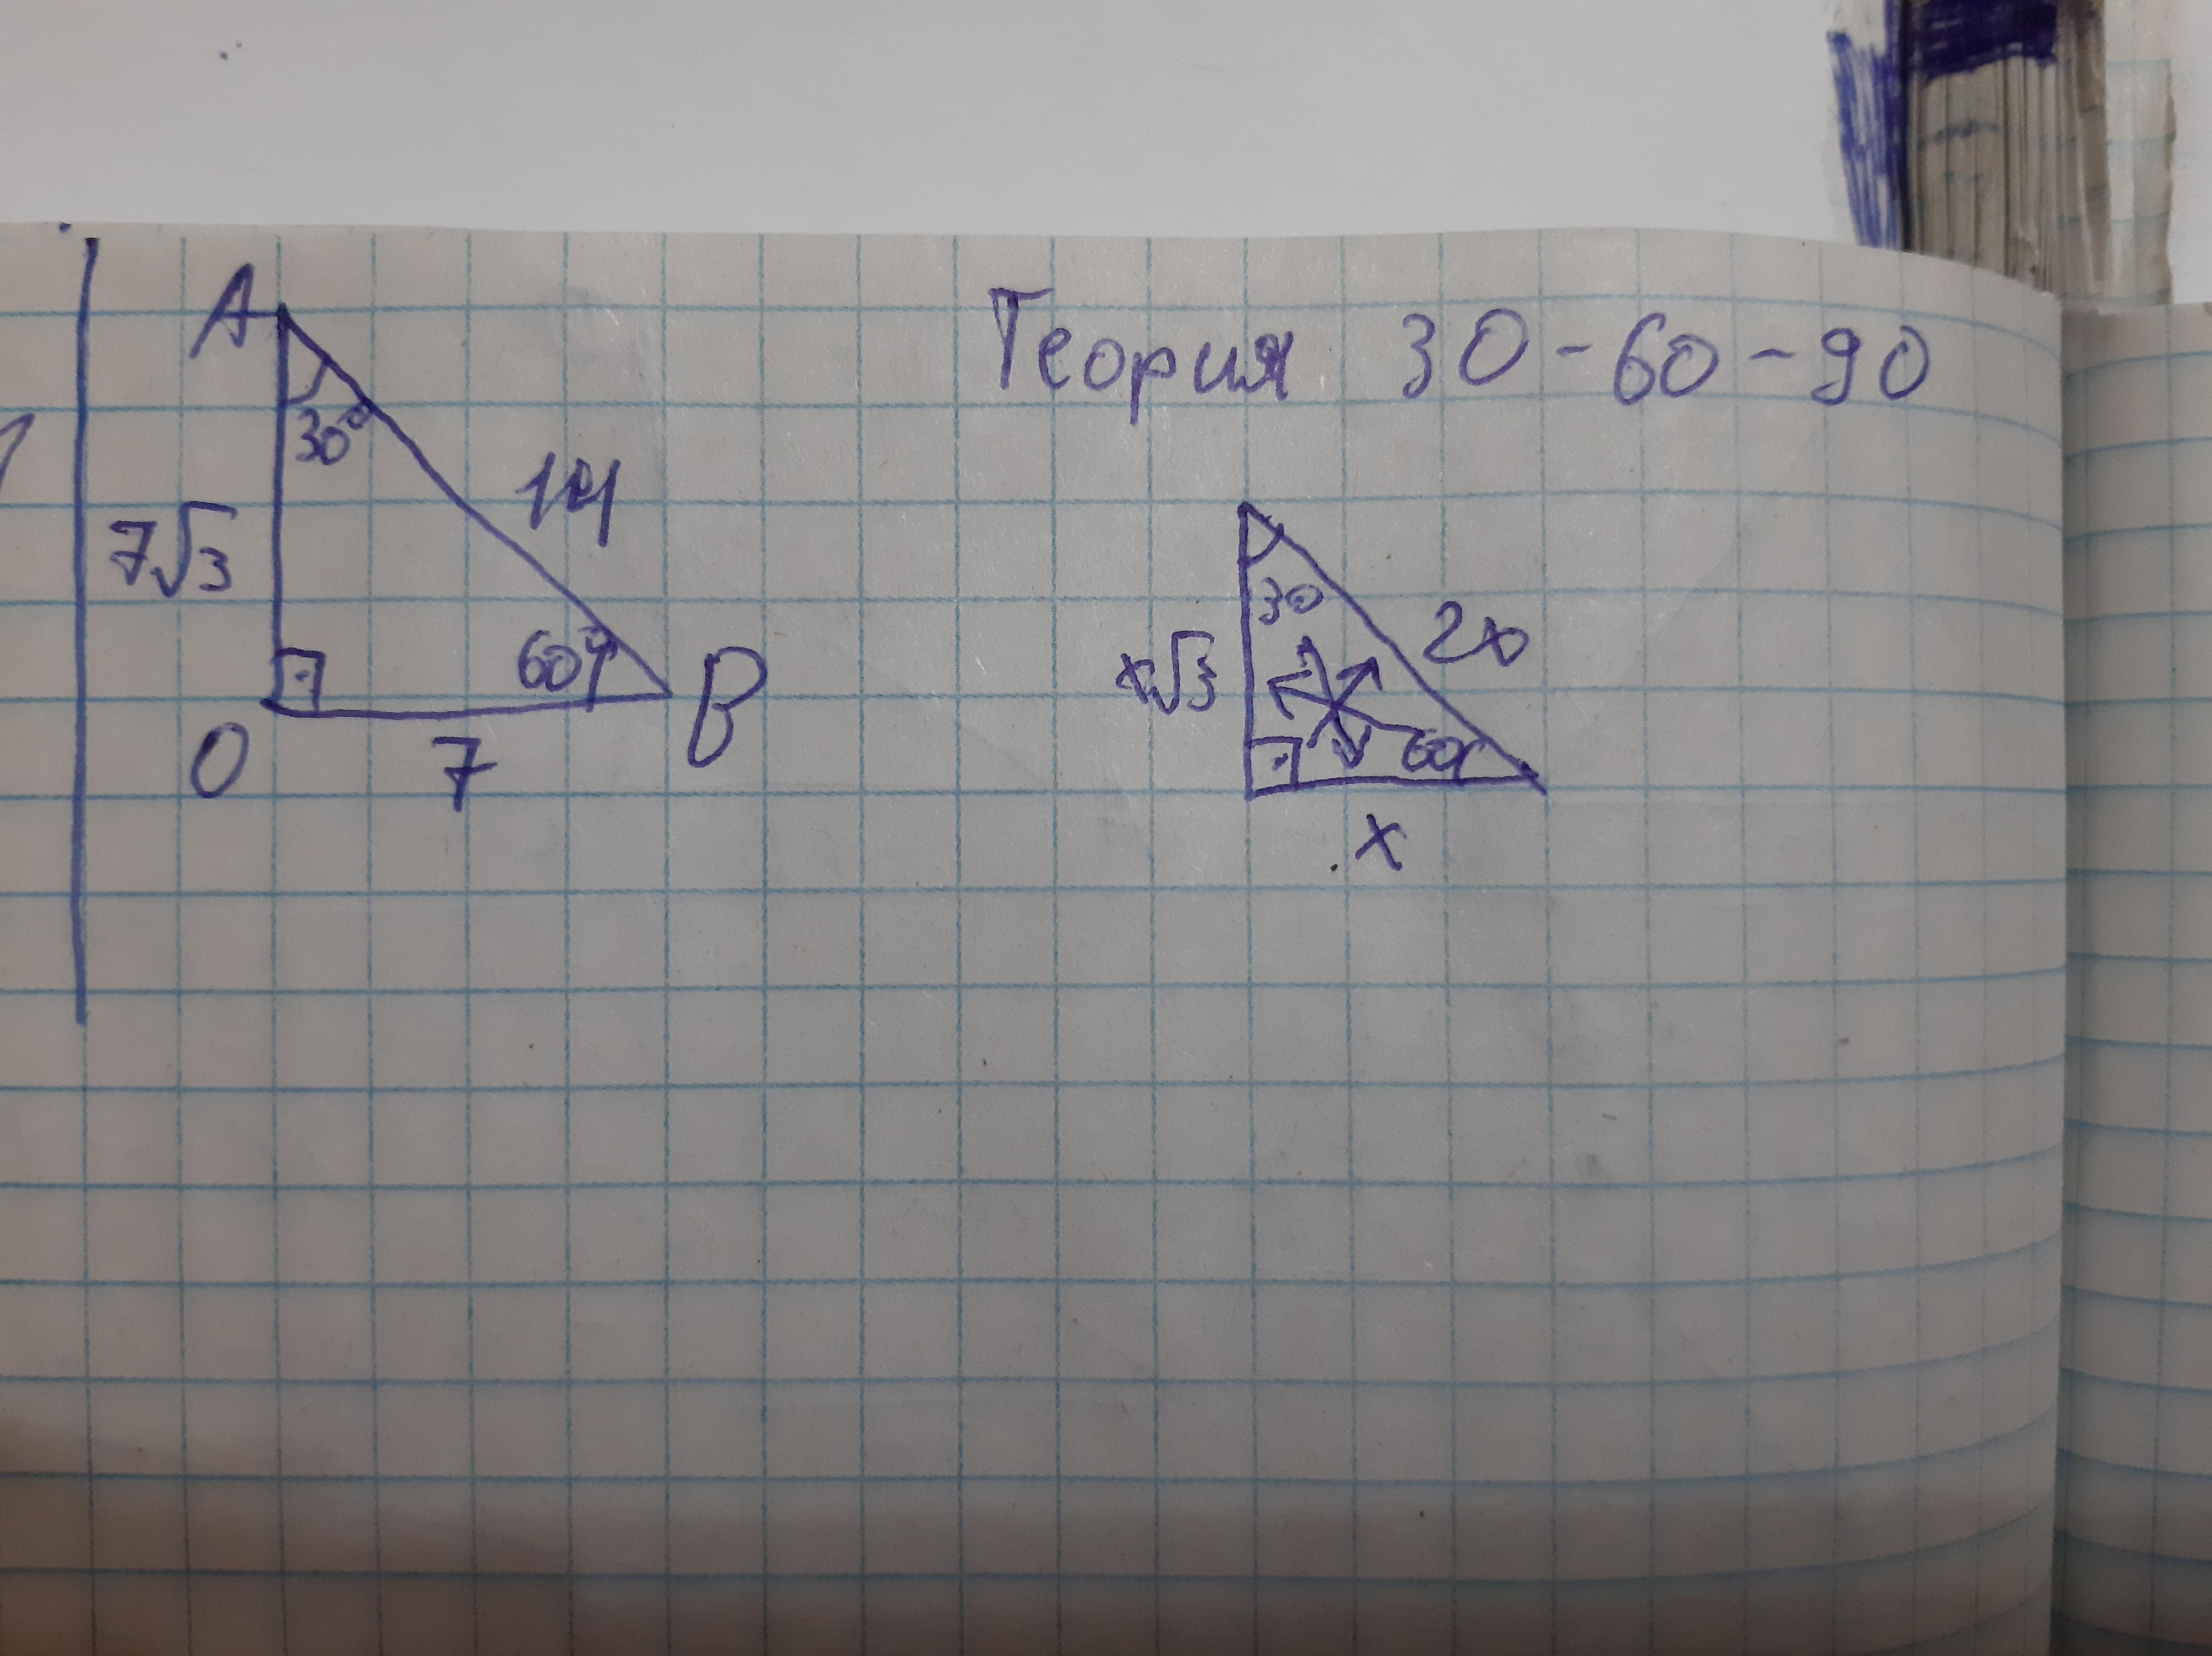 A
30°
14
7√3
60°
B
O
7
Теория 30-60-90
30
2x
x√3
60
x